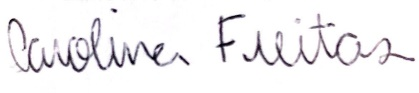 Caroline Freitas